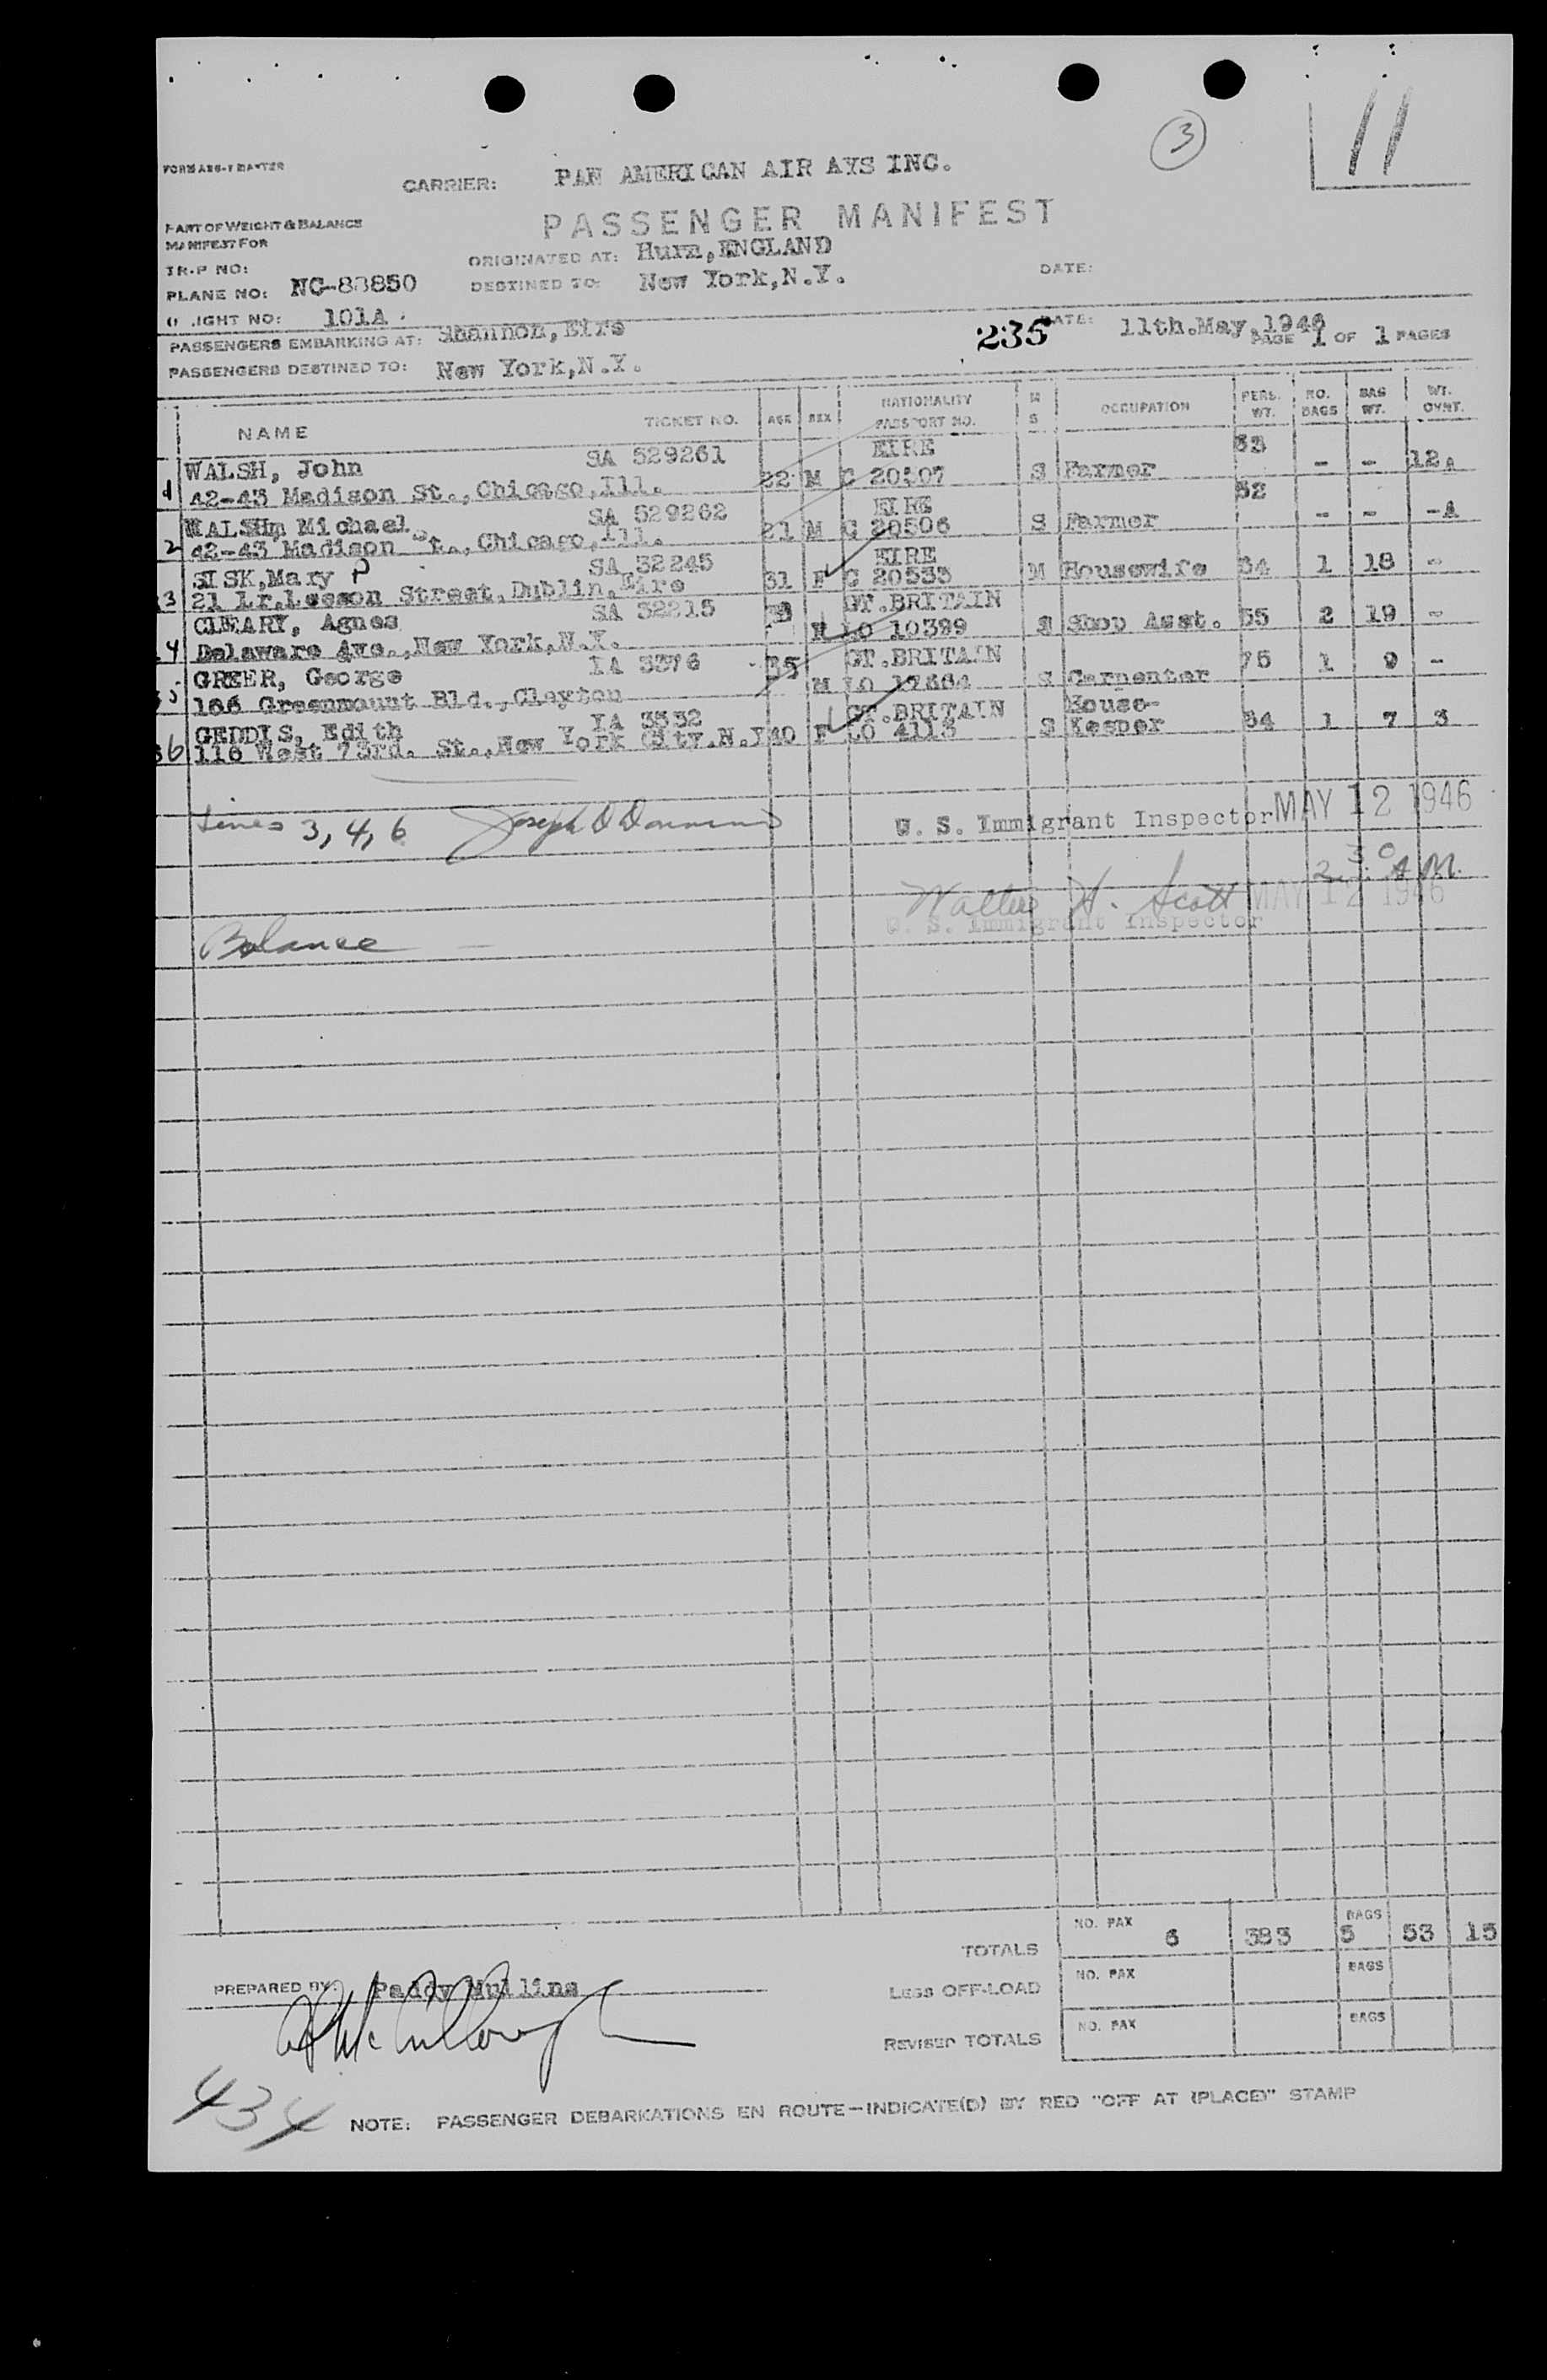 3
11
CARRIER: PAN AMERICAN AIR AYS INC.
PASSENGER MANIFEST
PART OF WEIGHT & BALANCE
MANIFEST FOR
ORIGINATED AT: Hurn, ENGLAND
TRIP NO:
DESTINED TO: New York, N.Y.
DATE:
PLANE NO: NC-88850
FLIGHT NO: 101A
PASSENGERS EMBARKING AT: Shannon, Eire
235 DATE: 11th.May,1946
PAGE 1 OF 1 PAGES
PASSENGERS DESTINED TO: New York, N.Y.
NAME TICKET NO. AGE SEX NATIONALITY PASSPORT NO. M S OCCUPATION PERS. WT. NO. BAGS BAG WT. WT. OVWT.
WALSH, John SA 529261 EIRE
1 42-43 Madison St., Chicago, Ill. 22 M C 20507 S Farmer - - 12
WALSH, Michael SA 529262 EIRE
2 42-43 Madison St., Chicago, Ill. 21 M C 20506 S Farmer - - -
SISK, Mary P SA 32245 EIRE
3 21 Lr. Leeson Street, Dublin, Eire 31 F C 20533 M Housewife 1 18 -
CLEARY, Agnes SA 32215 GT. BRITAIN
4 Delaware Ave., New York, N.Y. LO 10399 S Shop Asst. 55 2 19 -
GREER, George IA 3376 35 GT. BRITAIN
106 Greenmount Bld., Clayton M LO S Carpenter 75 1 9 -
GEDDIS, Edith IA 3532 GT. BRITAIN House-
6 116 West 73rd. St., New York City. N.Y 40 F LO 4113 S Keeper 1 7 3
Lines 3, 4, 6 U. S. Immigrant Inspector MAY 12 1946
2.30 A.M.
Walter H. Scott MAY 12 1946
U. S. Immigrant Inspector
Balance —
TOTALS NO. PAX 6 383 BAGS 5 53 15
PREPARED BY: Paddy Mullins
LESS OFF-LOAD NO. PAX BAGS
REVISED TOTALS NO. PAX BAGS
434
NOTE: PASSENGER DEBARKATIONS EN ROUTE—INDICATE(D) BY RED "OFF AT (PLACE)" STAMP